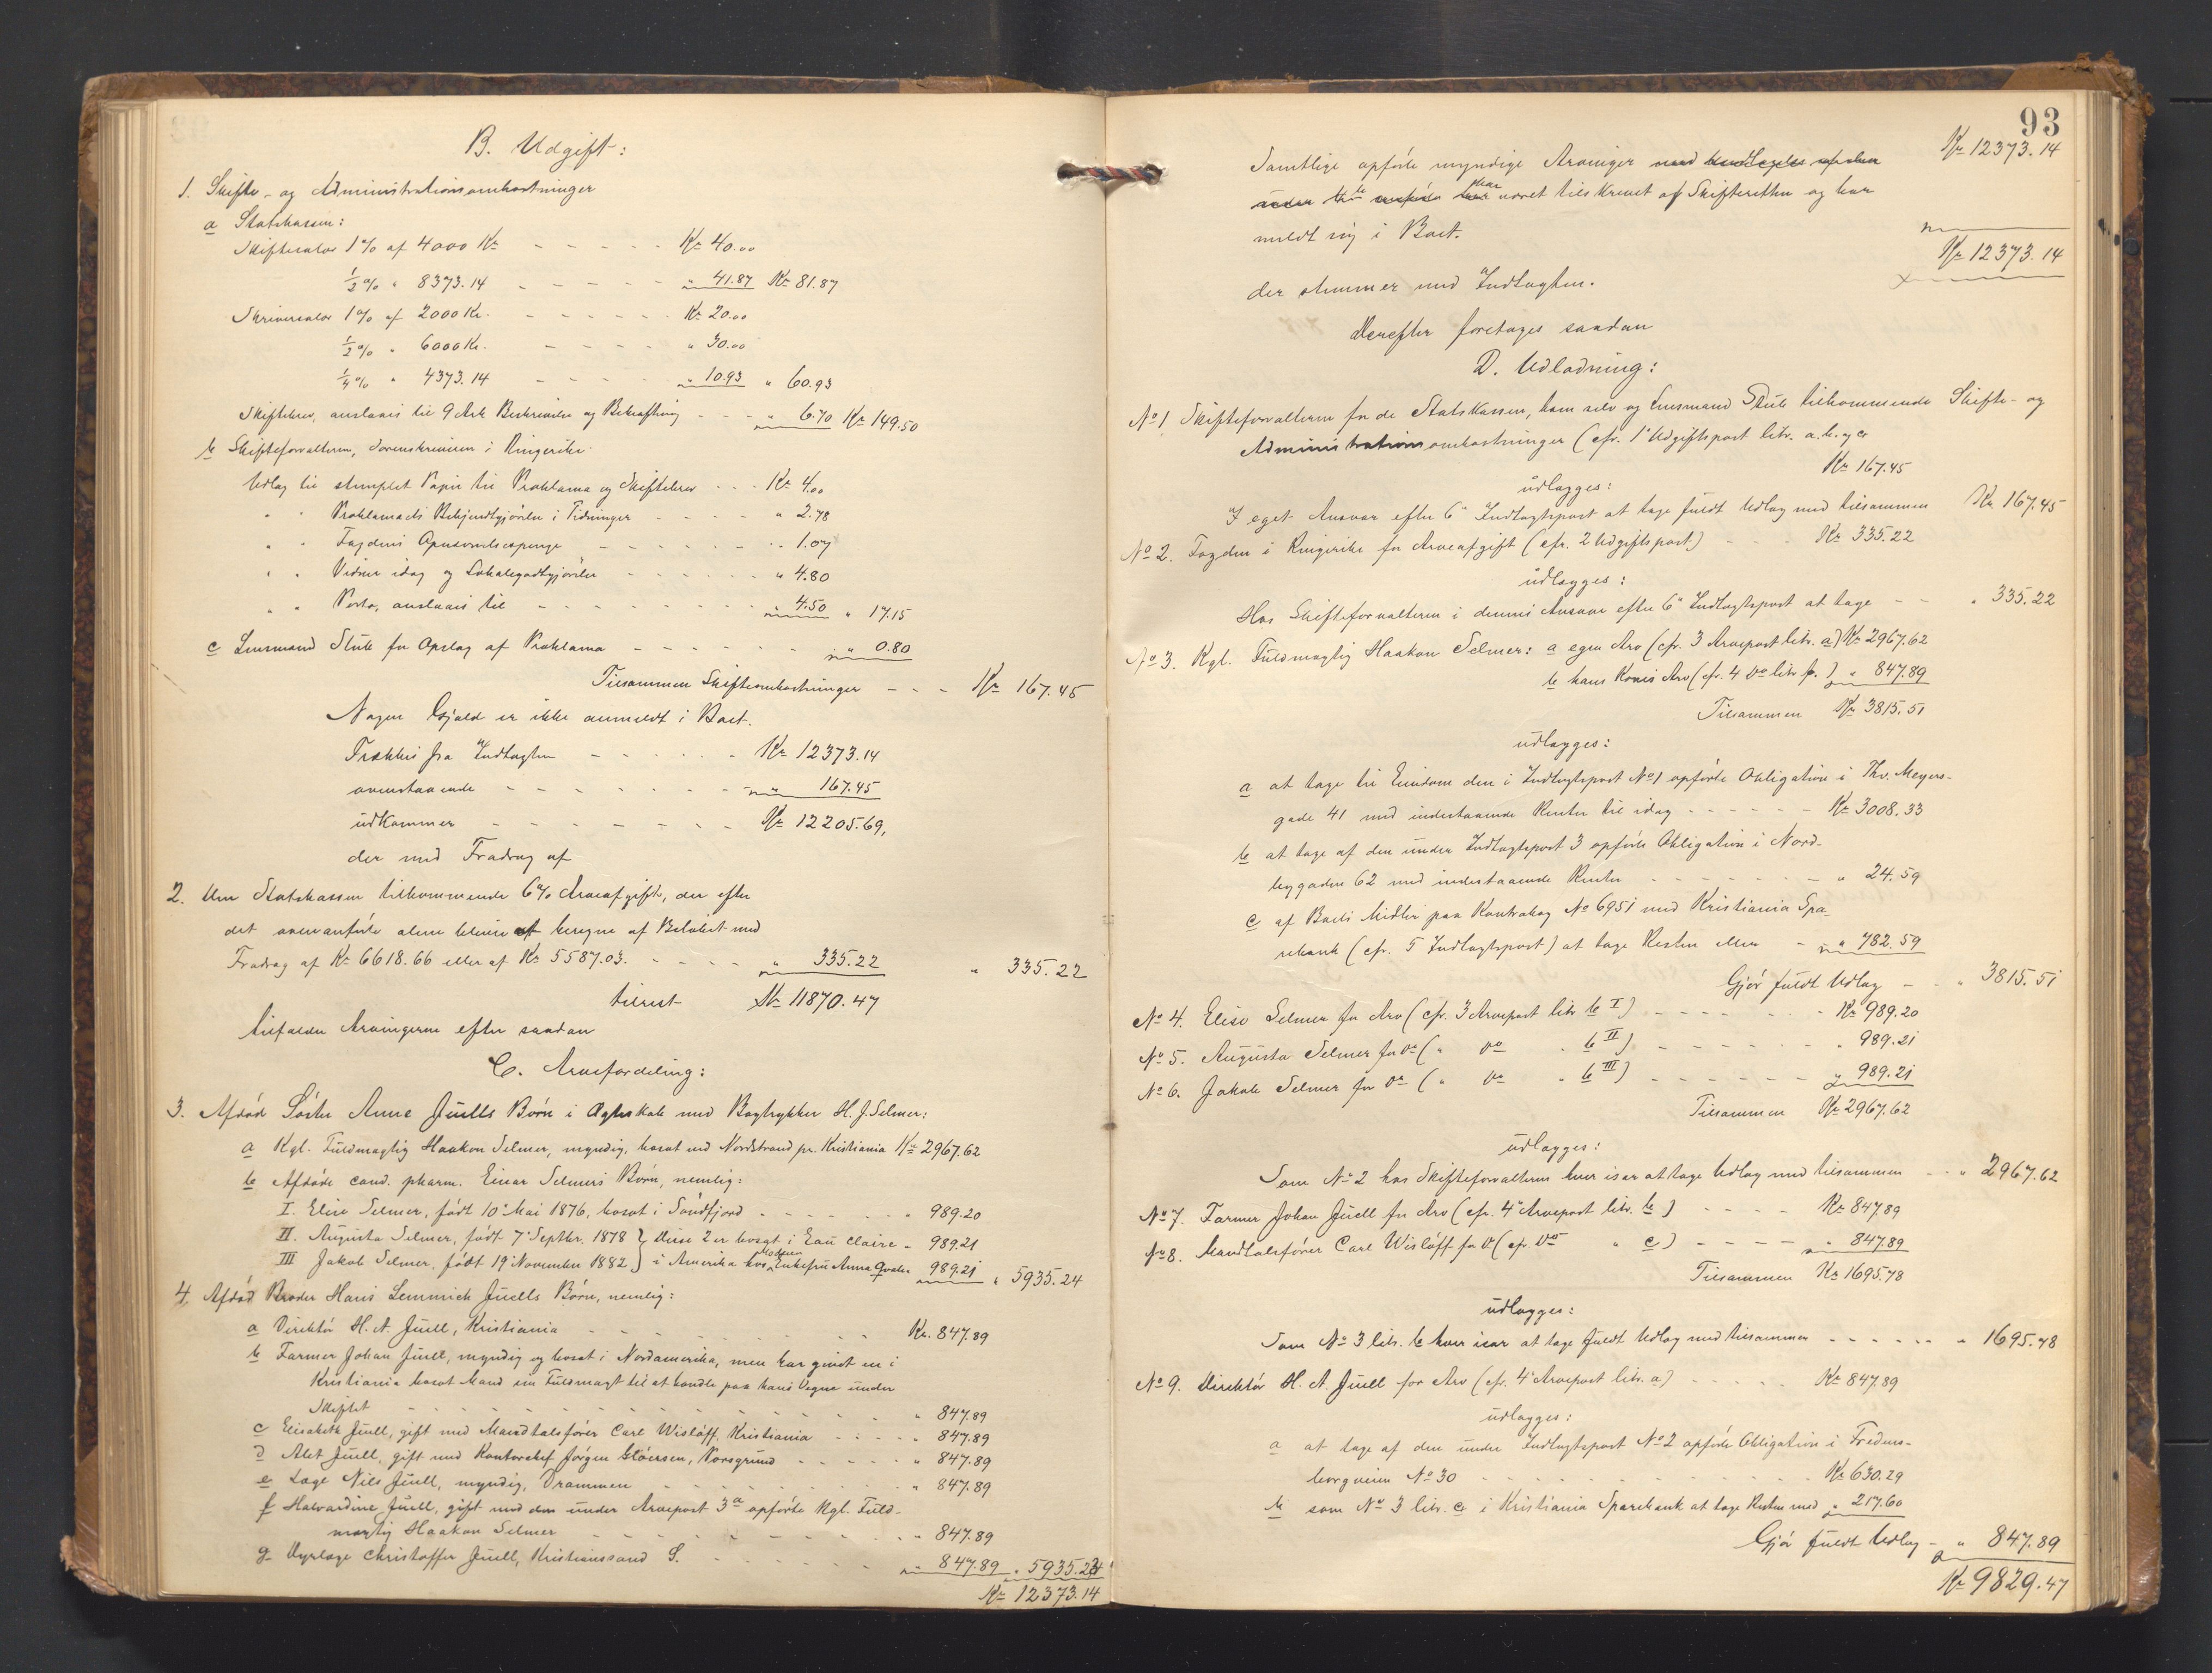 B. Udgift:
1. Skifte- og Administrationsomkostninger
a Statskassen:
Skiftesalær 1% af 4000 Kr - - - - - Kr 40.00
½% " 8373.14 - - - - - " 41.87 Kr 81.87
Skriversalær 1% af 2000 Kr. - - - - - - Kr 20.00
½% " 6000 Kr. - - - - " 30.00
¼% " 4373.14 - - - - " 10.93 " 60.93
Skiftebrev, anslaaes til 9 Ark Beskrivelse og Bekræftning - - - " 6.70 Kr 149.50
b Skifteforvalteren, Sorenskriveren i Ringerike.
Udlæg til stemplet Papir til Proklama og Skiftebrev - - - Kr 4.00
" " Proklamaets Bekjendtgjørelse i Tidninger - - - - " 2.78
" " Fogdens Opnævnelsespenge - - - - - " 1.07
" " Vidner idag og Lokalegodtgjørelse - - - - - - " 4.80
" " Porto, anslaaes til - - - - - - - - - " 4.50 " 17.15
c Lensmand Stub for Opslag af Proklama - - - - - - " 0.80
Tilsammen Skifteomkostninger - - - Kr 167.45
Nogen Gjæld er ikke anmeldt i Boet.
Trækkes fra Indtægten - - - - - - Kr 12373.14
ovenstaaende - - - - - - - - " 167.45
udkommer - - - - - - - Kr 12205.69,
der med Fradrag af
2. Den Statskassen tilkommende 6% Arveafgift, der efter
det ovenanførte alene bliver at beregne af Beløbet med
Fradrag af Kr 6618.66 eller af Kr 5587.03. - - - - " 335.22 " 335.22
tilrest Kr 11870.47
tilfalder Arvingerne efter saadan
C. Arvefordeling:
3. Afdød Søster Anne Juells Børn i Ægteskab med Bogtrykker H. J. Selmer:
a Kgl. Fuldmægtig Haakon Selmer, myndig, bosat ved Nordstrand pr. Kristiania Kr 2967.62
b Afdøde cand. pharm. Einar Selmers Børn, nemlig:
I. Elise Selmer, født 10 Mai 1876, bosat i Søndfjord - - - - - - " 989.20
II. Augusta Selmer, født 7 Septbr. 1878 } disse 2 er bosat i Eau Claire " 989.21
III Jakob Selmer, født 19 November 1882 } i Amerika hos Moderen Enkefru Anna Qvale " 989.21 " 5935.24
4. Afdød Broder Hans Lemmich Juells Børn, nemlig:
a Direktør H. A. Juell, Kristiania - - - - - - - - Kr. 847.89
b Farmer Johan Juell, myndig og bosat i Nordamerika, men har givet en i
Kristiania bosat Mand sin Fuldmagt til at handle paa hans Vegne under
Skiftet - - - - - - - - - - - - " 847.89
c Elisabeth Juell, gift med Mandtalsfører Carl Wisløff, Kristiania - - - - - " 847.89
d Alet Juell, gift med Kontorchef Jørgen Gløersen, Porsgrund - - - - - " 847.89
e Læge Niels Juell, myndig, Drammen - - - - - - - - " 847.89
f Halvardine Juell, gift med den under Arvepost 3 a opførte Kgl. Fuld-
mægtig Haakon Selmer - - - - - - - - " 847.89
g Dyrlæge Christoffer Juell, Kristianssand S. - - - - - - " 847.89 " 5935.23
Kr 12373.14
93
Kr 12373.14
Samtlige opførte myndige Arvinger
har været tilskrevet af Skifteretten og har
meldt sig i Boet.
Kr 12373.14
der stemmer med Indtægten.
Derefter foretages saadan
D. Udlodning:
No 1. Skifteforvalteren for de Statskassen, ham selv og Lensmand Stub tilkommende Skifte- og
Administrationsomkostninger (cfr. 1 Udgiftspost litr. a. b. og c
Kr 167.45
udlægges:
I eget Ansvar efter 6 Indtægtspost at tage fuldt Udlæg med tilsammen Kr 167.45
No 2. Fogden i Ringerike for Arveafgift (cfr. 2 Udgiftspost) - - - Kr 335.22
udlægges:
Hos Skifteforvalteren i dennes Ansvar efter 6 Indtægtspost at tage - - " 335.22
No 3. Kgl. Fuldmægtig Haakon Selmer: a egen Arv (cfr. 3 Arvepost litr. a) Kr 2967.62
b hans Kones Arv (cfr. 4 do litr f.) " 847.89
Tilsammen Kr 3815.51
udlægges:
a at tage til Eiendom den i Indtægtspost No 1 opførte Obligation i Thv. Meyers-
gade 41 med indestaaende Renter til idag - - - - - - Kr 3008.33
b at tage af den under Indtægtspost 3 opførte Obligation i Nord-
bygaden 62 med indestaaende Renter - - - - - - - - " 24.59
c af Boets Midler paa Kontrabog No 6951 med Kristiania Spa-
rebank (cfr. 5 Indtægtspost) at tage Resten eller - " 782.59
Gjør fuldt Udlæg - - " 3815.51
No 4. Elise Selmer for Arv (cfr. 3 Arvepost litr b I) - - - - - - Kr 989.20
No 5. Augusta Selmer for do (" do " b II) - - - - - - " 989.21
No 6. Jakob Selmer for do (" do " b III) - - - - - - " 989.21
Tilsammen Kr 2967.62
udlægges:
Som No 2 hos Skifteforvalteren hver især at tage Udlæg med tilsammen - - " 2967.62
No 7. Farmer Johan Juell for Arv (cfr. 4 Arvepost litr. b) - - - - Kr 847.89
No 8. Mandtalsfører Carl Wisløff for do (cfr. do " c) - - - - " 847.89
Tilsammen Kr 1695.78
udlægges:
Som No 3 litr. b hver især at tage fuldt Udlæg med tilsammen - - - - - - " 1695.78
No 9. Direktør H. A. Juell for Arv (cfr. 4 Arvepost litr. a) - - - - - Kr 847.89
udlægges:
a at tage af den under Indtægtspost No 2 opførte Obligation i Fredens-
borgveien No 30 - - - - - - - - - - - Kr 630.29
b som No 3 litr. c i Kristiania Sparebank at tage Resten med " 217.60
Gjør fuldt Udlæg - " 847.89
Kr 9829.47